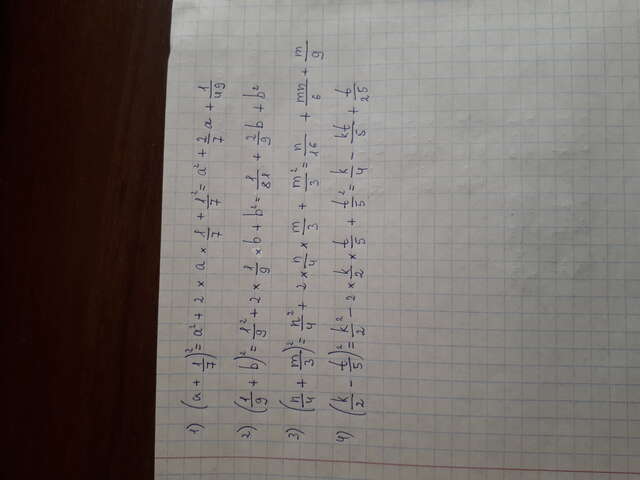 1) (a + 1/7)² = a² + 2 × a × 1/7 + 1²/7 = a² + 2/7 a + 1/49
2) (1/9 + b)² = 1²/9 + 2 × 1/9 × b + b² = 1/81 + 2/9 b + b²
3) (n/4 + m/3)² = n²/4 + 2 × n/4 × m/3 + m²/3 = n/16 + mn/6 + m/9
4) (k/2 - t/5)² = k²/2 - 2 × k/2 × t/5 + t²/5 = k/4 - kt/5 + t/25